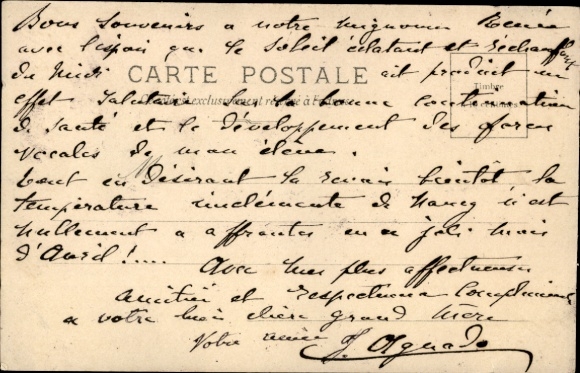 Bons souvenirs a notre mignonne Renée
avec l'espoir que le soleil éclatant et réchauffant
du midi ait produit un
CARTE POSTALE
Timbre
effet salutaire bonne continuation
exclusivement réservé à l'adresse
de santé et le développement des forces
vocales de mon élève.
Tout en désirant la revoir bientôt la
température inclémente de Nancy n'est
nullement a affronter en ce joli mois
d'Avril !....
Avec mes plus affectueuses
amitiés et respectueux compliments
a votre bien chère grand mère
Votre amie J. Aguado